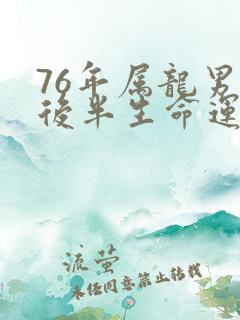 76年属龍男
後半生命運
流萤
未经同意禁止转载